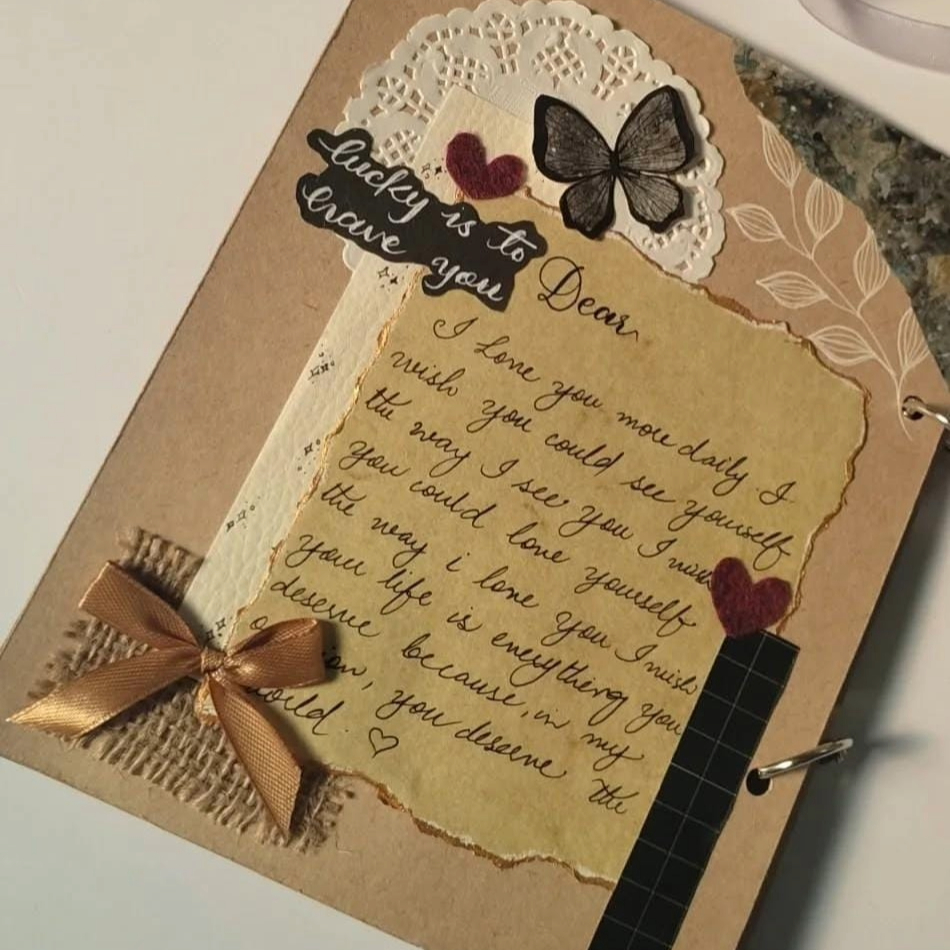 lucky is to
have you
Dear,
I Love you more daily. I
wish you could see yourself
the way I see you I
you could love yourself
the way i love you I wish
your life is everything you
deserve because, in my
you deserve the
world. ♡